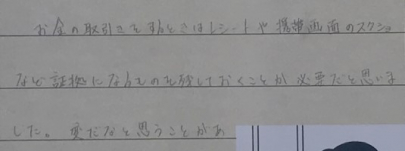 お金の取引きをするときはレシートや携帯画面のスクショ
など証拠になるものを残しておくことが必要だと思いま
した。変だなと思うことがあ